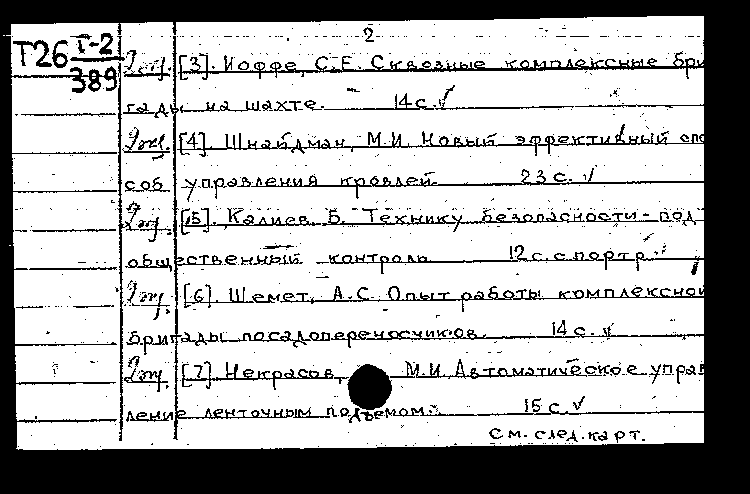 2
Т26 Т-2
389
[3]. Иоффе, С.Е. Сквозные комплексные бри
гады на шахте. 14 с.
[4]. Шнайдман, М.И. Новый эффективный спо
соб управления кровлей. 23 с.
[5]. Калиев, Б. Технику безопасности - под
общественный контроль 12 с. с портр.
[6]. Шемет, А.С. Опыт работы комплексной
бригады посадопереносчиков. 14 с.
[7]. Некрасов, М.И. Автоматическое управ
ление ленточным подъемом. 15 с.
См. след. карт.